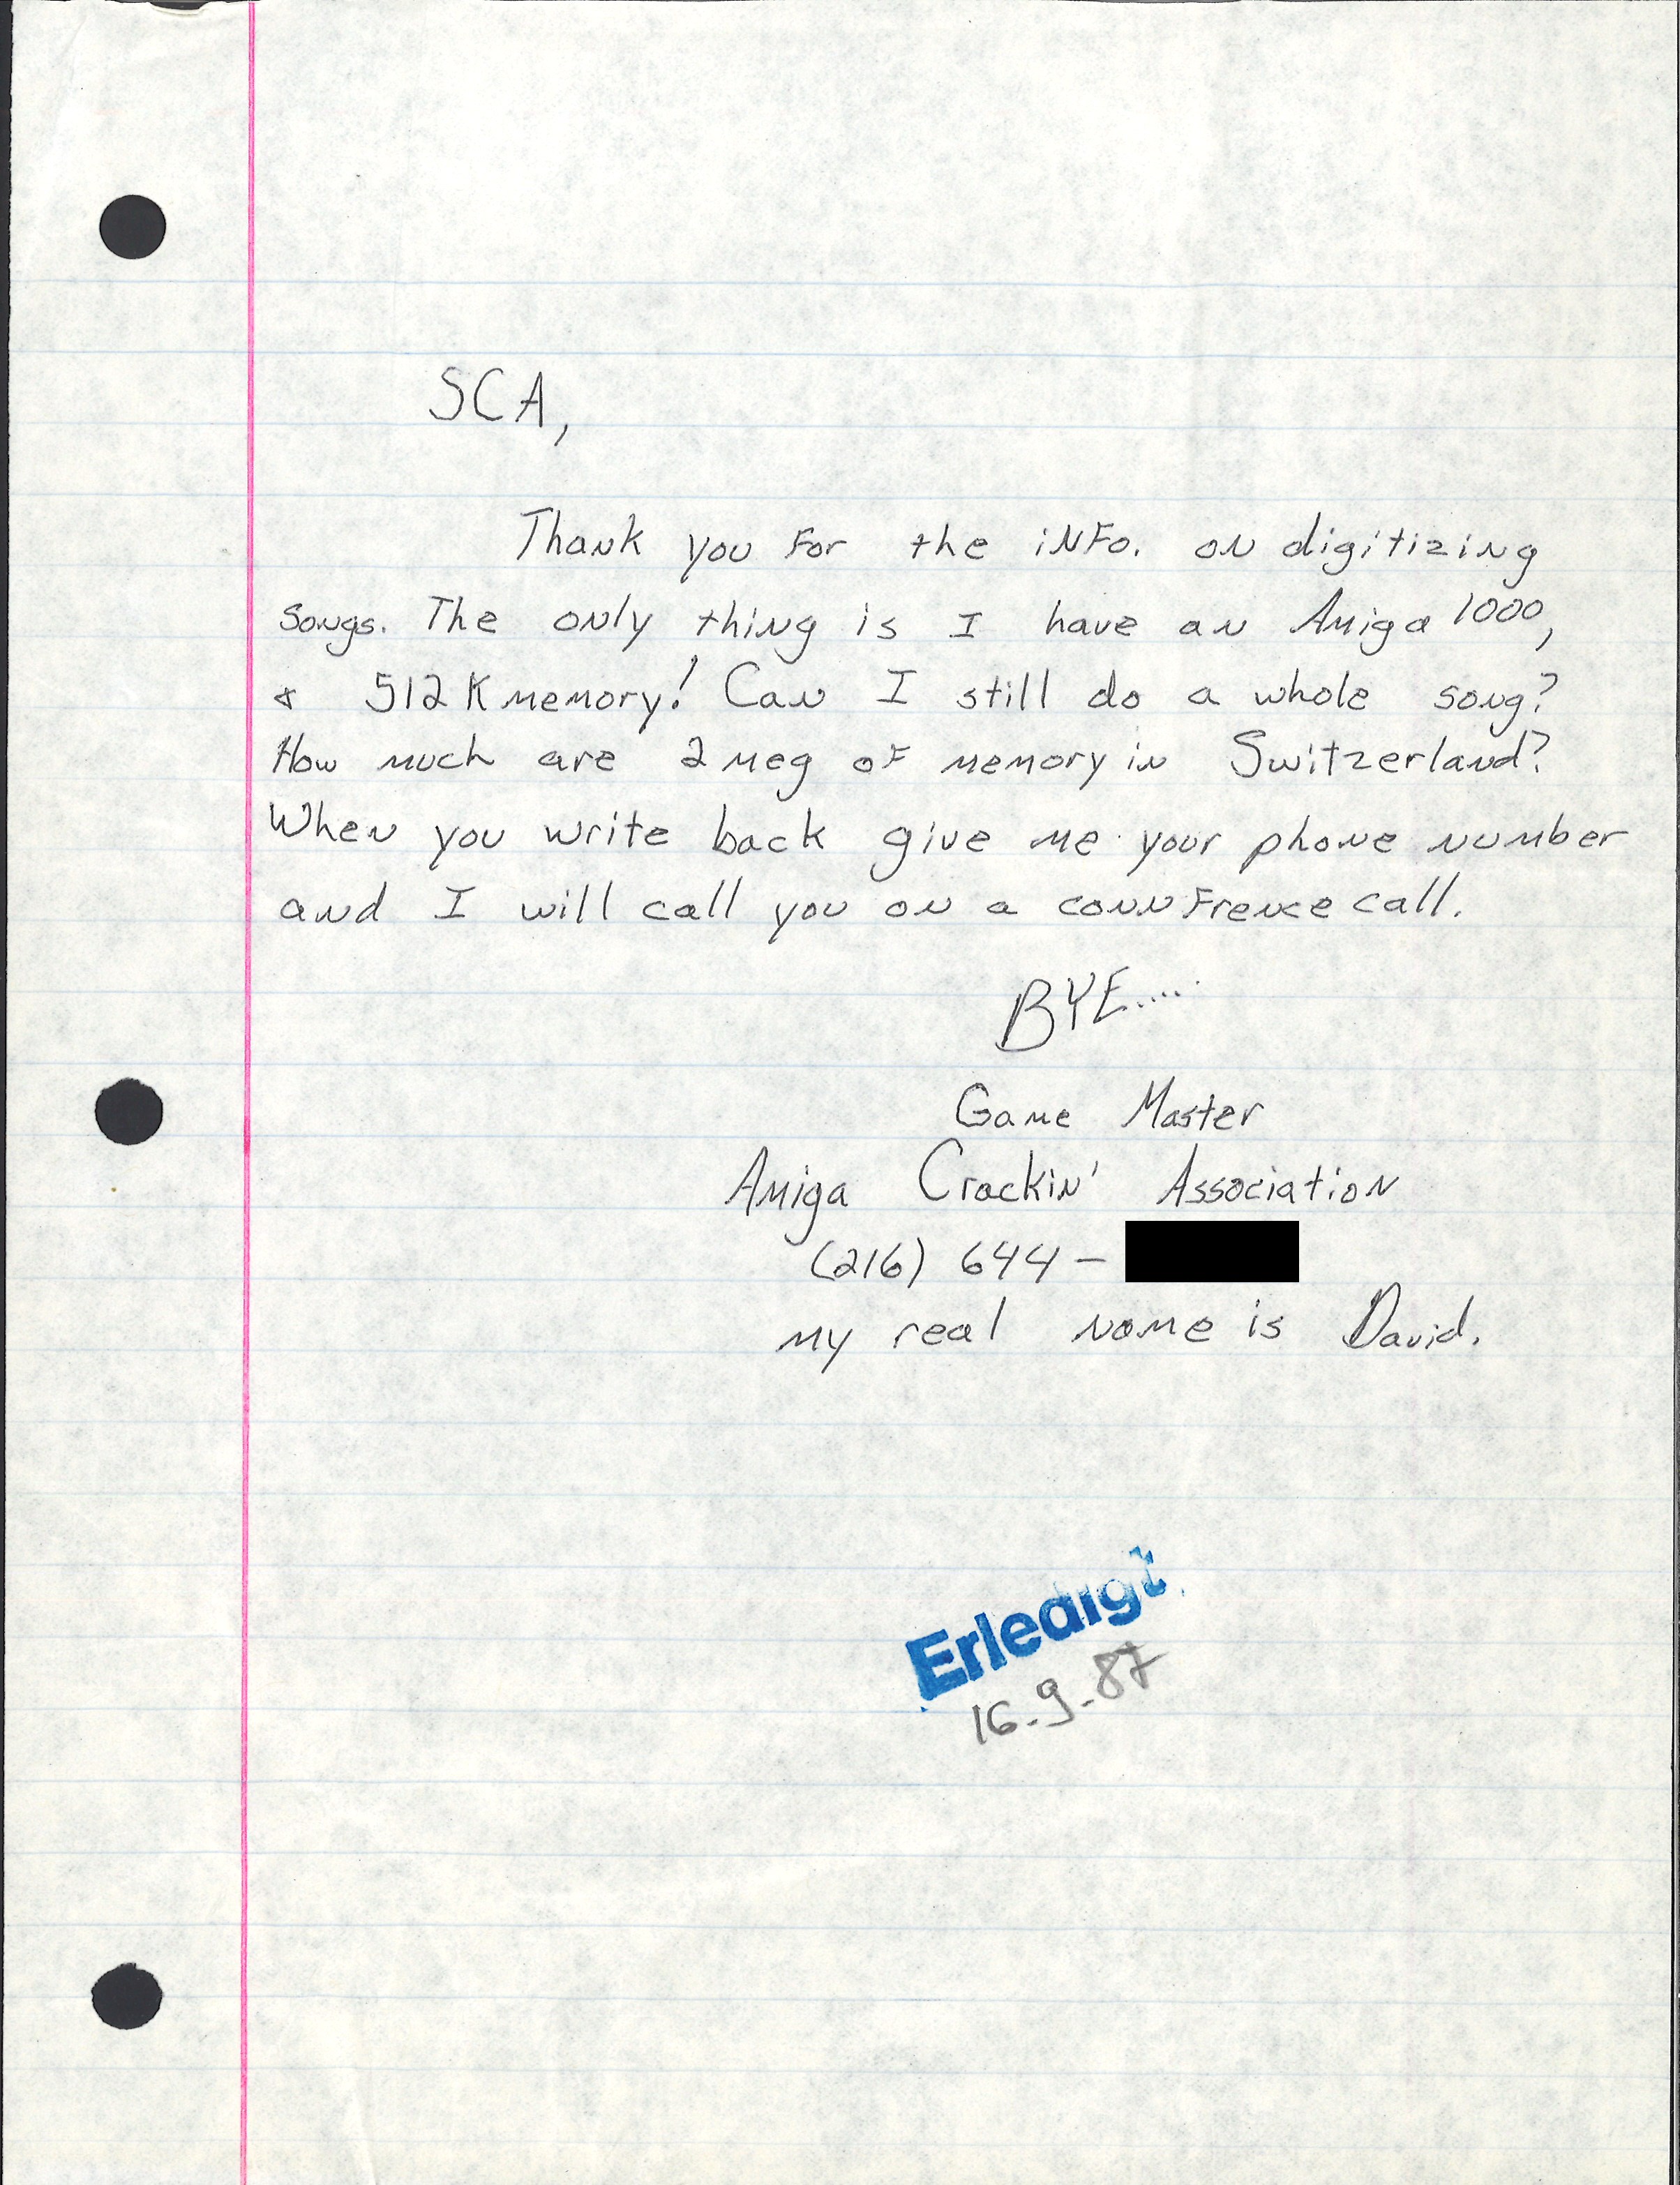 SCA,
Thank you For the iNFo. oN digitizing
Songs. The only thing is I have an Amiga 1000,
& 512K memory! Can I still do a whole song?
How much are 2 meg of memory in Switzerland?
When you write back give me your phone number
and I will call you on a connFrence call.
BYE.....
Game Master
Amiga Crackin' Association
(216) 644-
my real name is David.
Erledigt
16.9.87